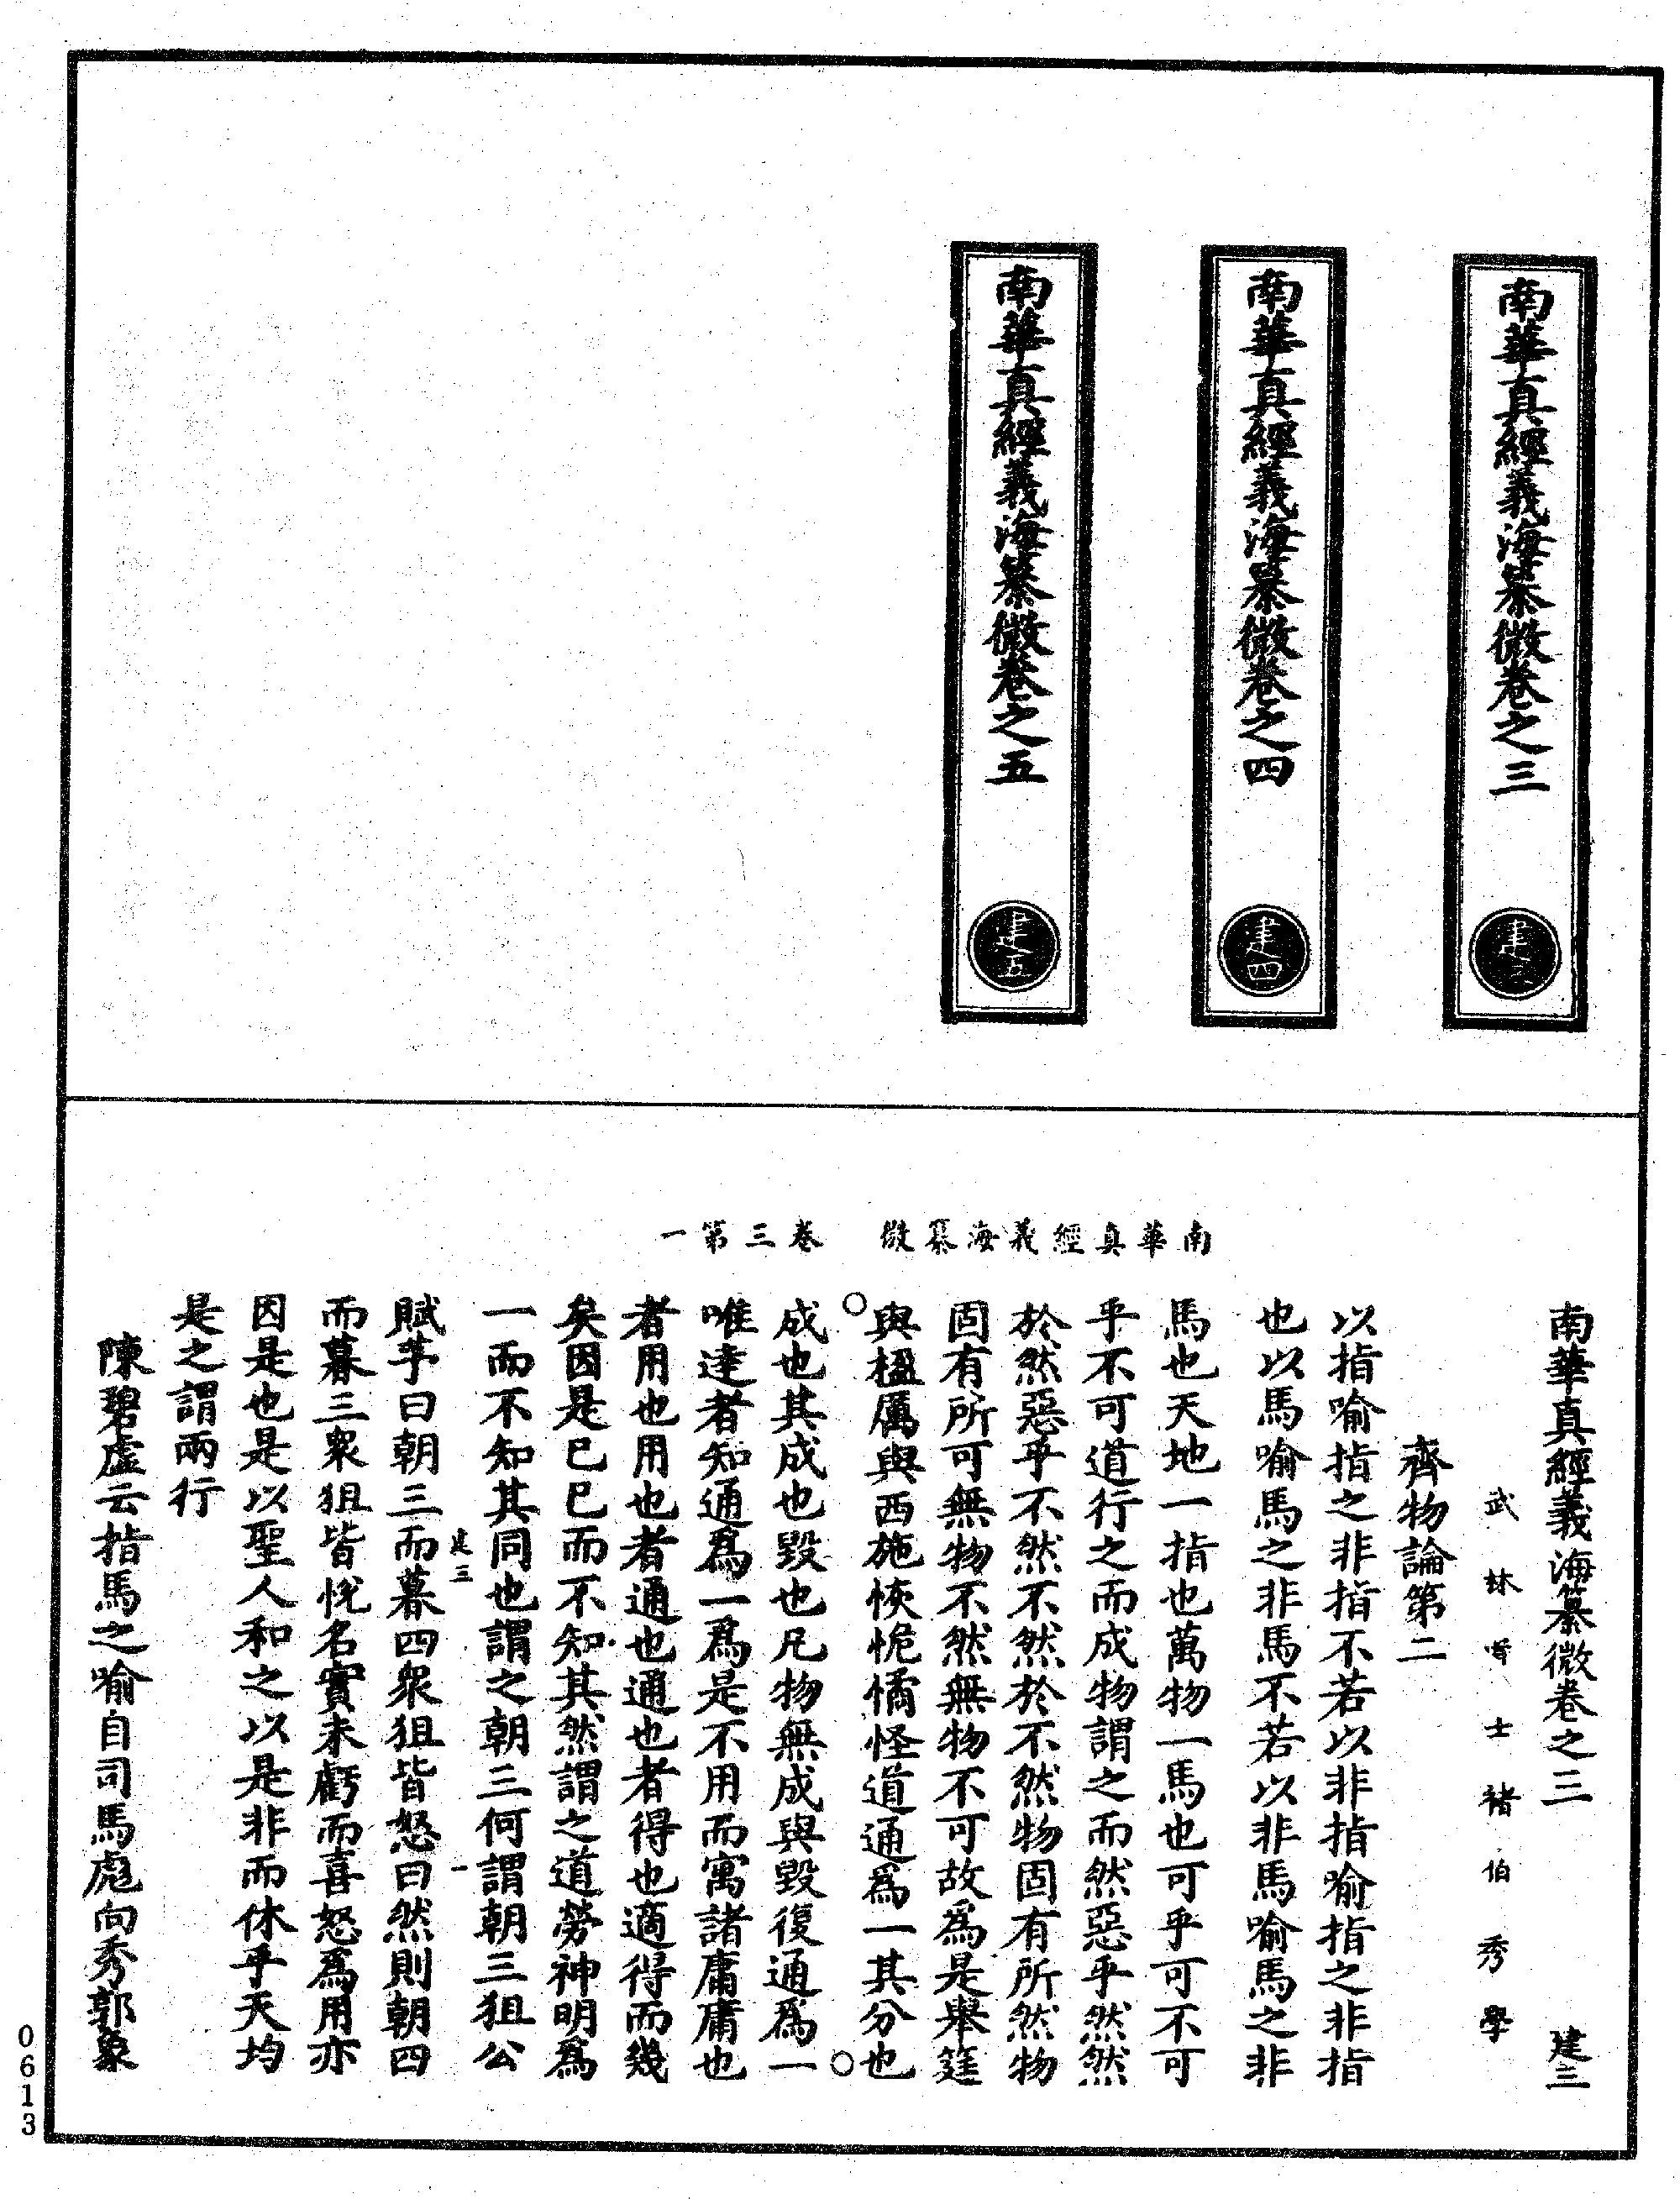 南華真經義海纂微卷之三
建三
南華真經義海纂微卷之四
建四
南華真經義海纂微卷之五
建五
南華真經義海纂微　卷三第一
南華真經義海纂微卷之三　建三
武林道士褚伯秀學
齊物論第二
以指喻指之非指不若以非指喻指之非指
也以馬喻馬之非馬不若以非馬喻馬之非
馬也天地一指也萬物一馬也可乎可不可
乎不可道行之而成物謂之而然惡乎然然
於然惡乎不然不然於不然物固有所然物
固有所可無物不然無物不可故為是舉筳
與楹厲與西施恢恑憰怪道通爲一其分也
成也其成也毀也凡物無成與毀復通為一
唯達者知通爲一爲是不用而寓諸庸庸也
者用也用也者通也通也者得也適得而幾
矣因是已已而不知其然謂之道勞神明爲
一而不知其同也謂之朝三何謂朝三狙公
建三　一
賦芧曰朝三而暮四衆狙皆怒曰然則朝四
而暮三衆狙皆悅名實未虧而喜怒爲用亦
因是也是以聖人和之以是非而休乎天均
是之謂兩行
陳碧虛云指馬之喻自司馬彪向秀郭象
0613